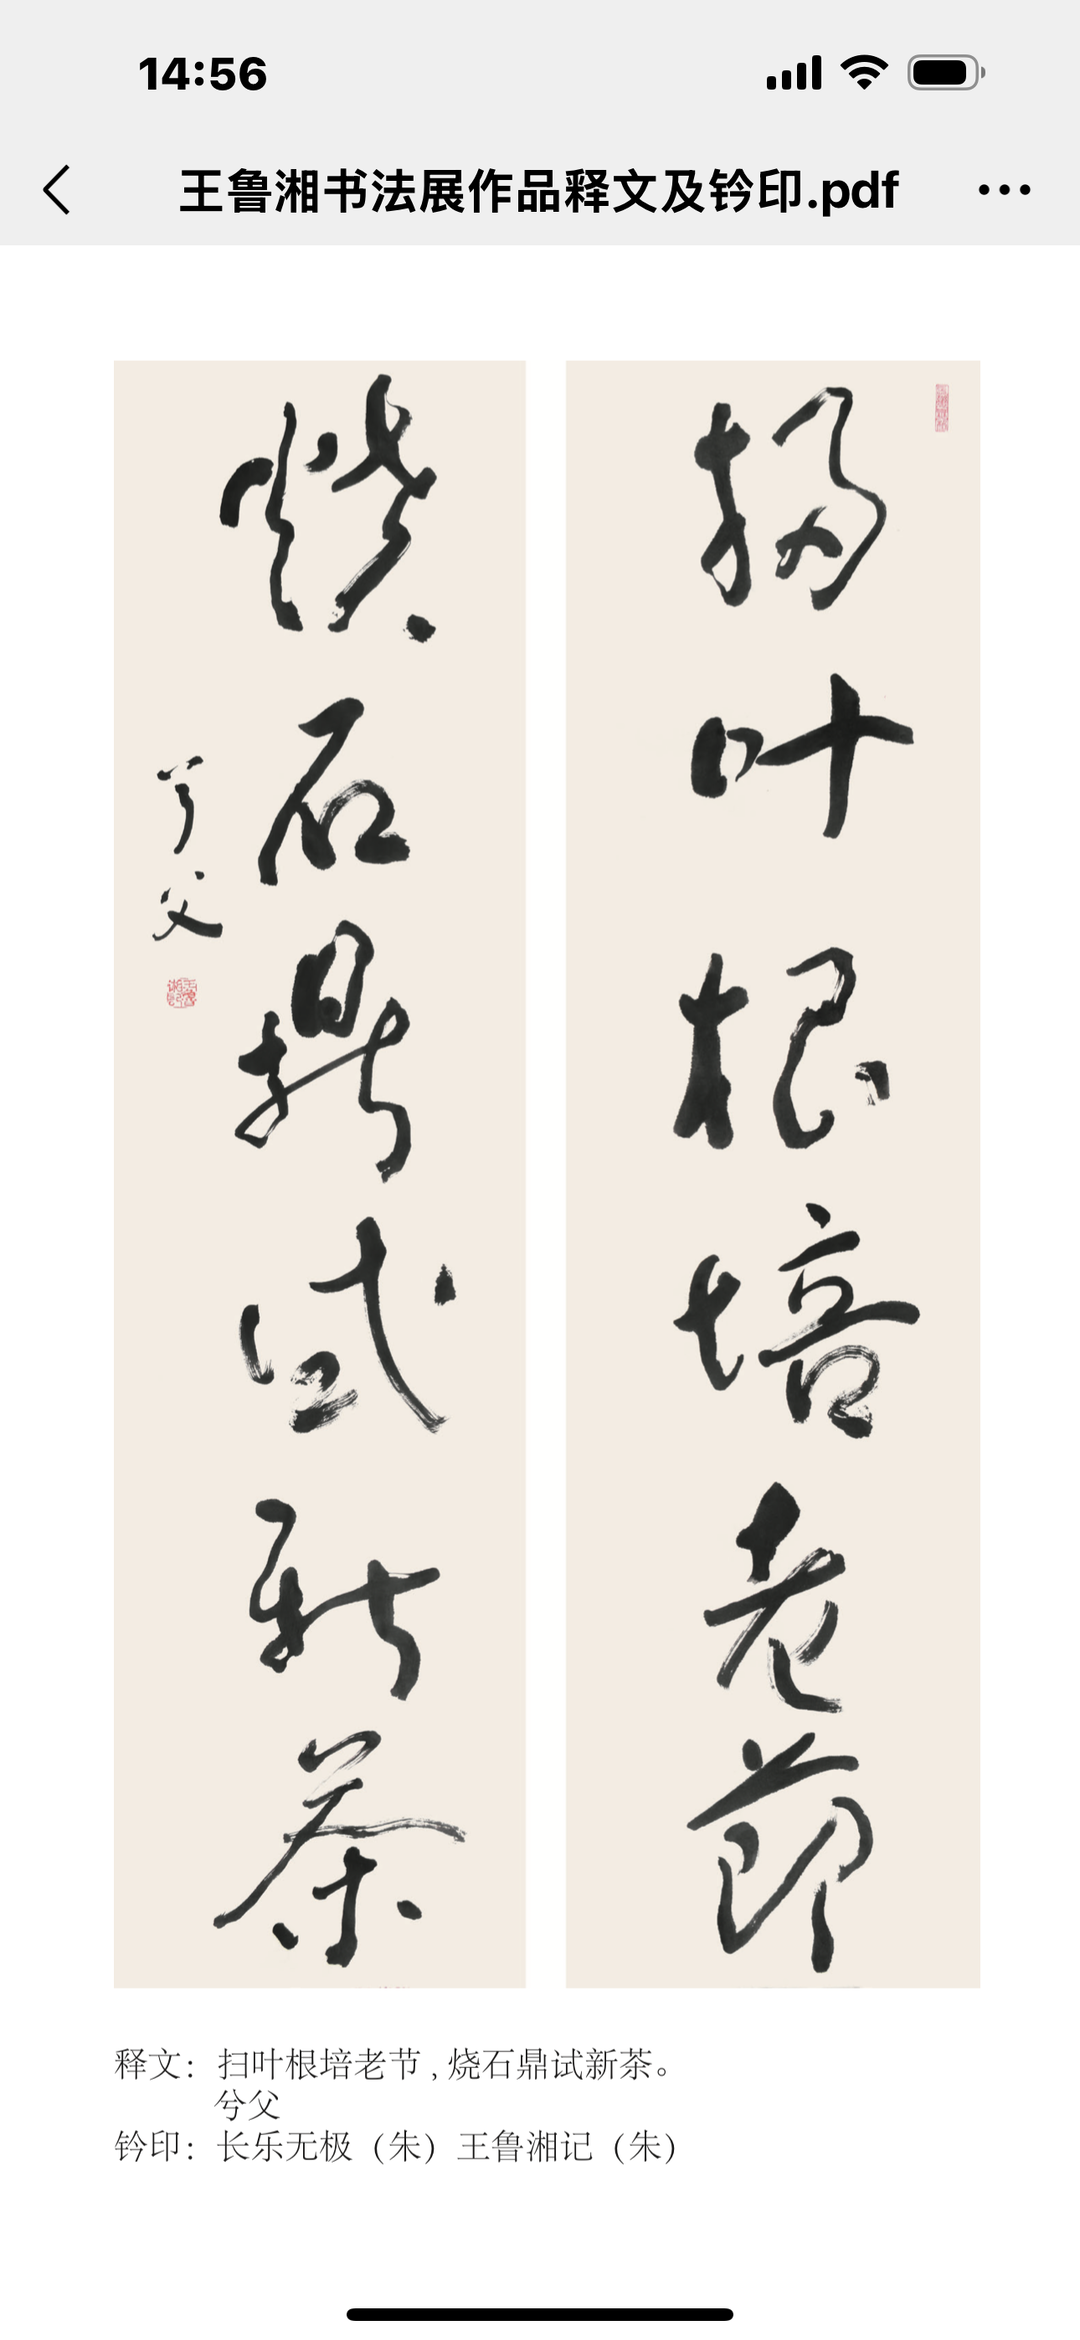 14:56
王鲁湘书法展作品释文及钤印.pdf
掃叶根培老節
燒石鼎试新茶
兮父
释文：扫叶根培老节，烧石鼎试新茶。
兮父
钤印：长乐无极（朱）王鲁湘记（朱）